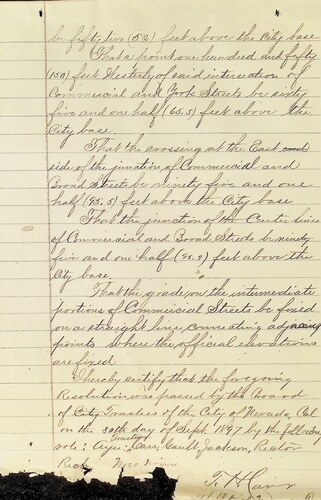 be fifty two (52) feet above the City base
That a point one hundred and fifty
(150) feet Westerly of said intersection of
Commercial and York Streets be sixty
five and one half (65.5) feet above the
City base.
That the crossing at the East end
side of the junction of Commercial and
Broad Streets be ninety five and one
half (95.5) feet above the City base
That the junction of the Center lines
of Commercial and Broad Streets be ninety
five and one half (95.5) feet above the
City base.
That the grade on the intermediate
portions of Commercial Streets be fixed
on a straight line, connecting adjacent
points where the official elevations
are fixed
I hereby certify that the foregoing
Resolution was passed by the Board
of City Trustees of the City of Nevada, Cal
on the 30th day of Sept. 1897 by the following
vote: Ayes: Trustees Carr, Gault, Jackson, Rector
T. H. Carr